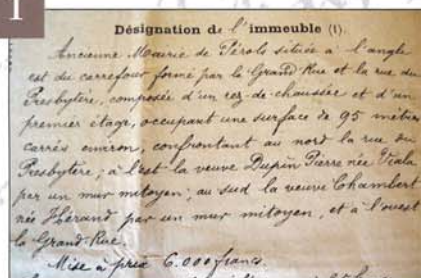 1
Désignation de l'immeuble (1).
Ancienne Mairie de Pérols située à l'angle
est du carrefour formé par la Grand'Rue et la rue du
Presbytère, composée d'un rez-de-chaussée et d'un
premier étage, occupant une surface de 95 mètres
carrés environ, confrontant au nord la rue du
Presbytère; à l'est la veuve Dupin Pierre née Viala
par un mur mitoyen; au sud la veuve Chambert
née Hérand par un mur mitoyen, et à l'ouest
la Grand'Rue.
Mise à prix 6.000 francs.